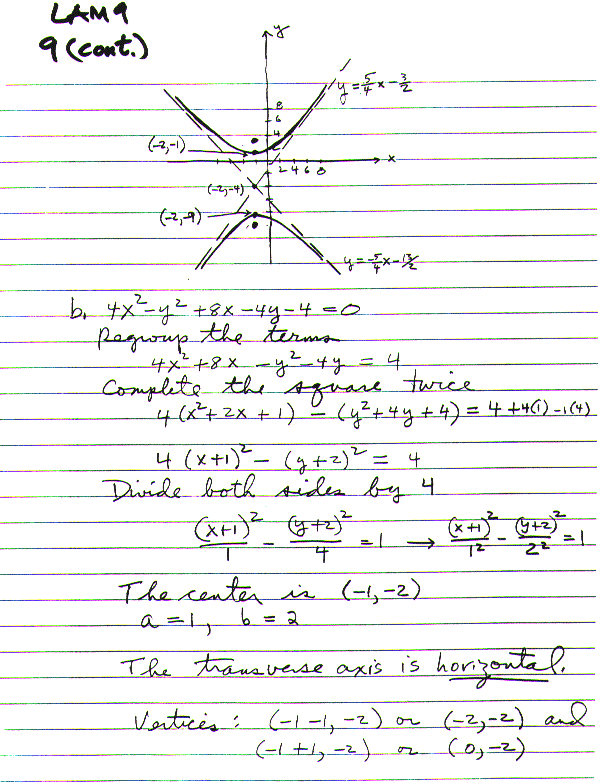 LAM 9
9 (cont.)
y
y = 5/4 x - 3/2
8
6
4
2
(-2,-1)
x
2 4 6 8
(-2,-4)
(-2,-9)
y = -5/4 x - 13/2
b. 4x² - y² + 8x - 4y - 4 = 0
Regroup the terms
4x² + 8x - y² - 4y = 4
Complete the square twice
4(x² + 2x + 1) - (y² + 4y + 4) = 4 + 4(1) - 1(4)
4(x+1)² - (y+2)² = 4
Divide both sides by 4
(x+1)²/1 - (y+2)²/4 = 1 → (x+1)²/1² - (y+2)²/2² = 1
The center is (-1,-2)
a = 1, b = 2
The transverse axis is horizontal.
Vertices: (-1-1, -2) or (-2,-2) and
(-1+1, -2) or (0,-2)